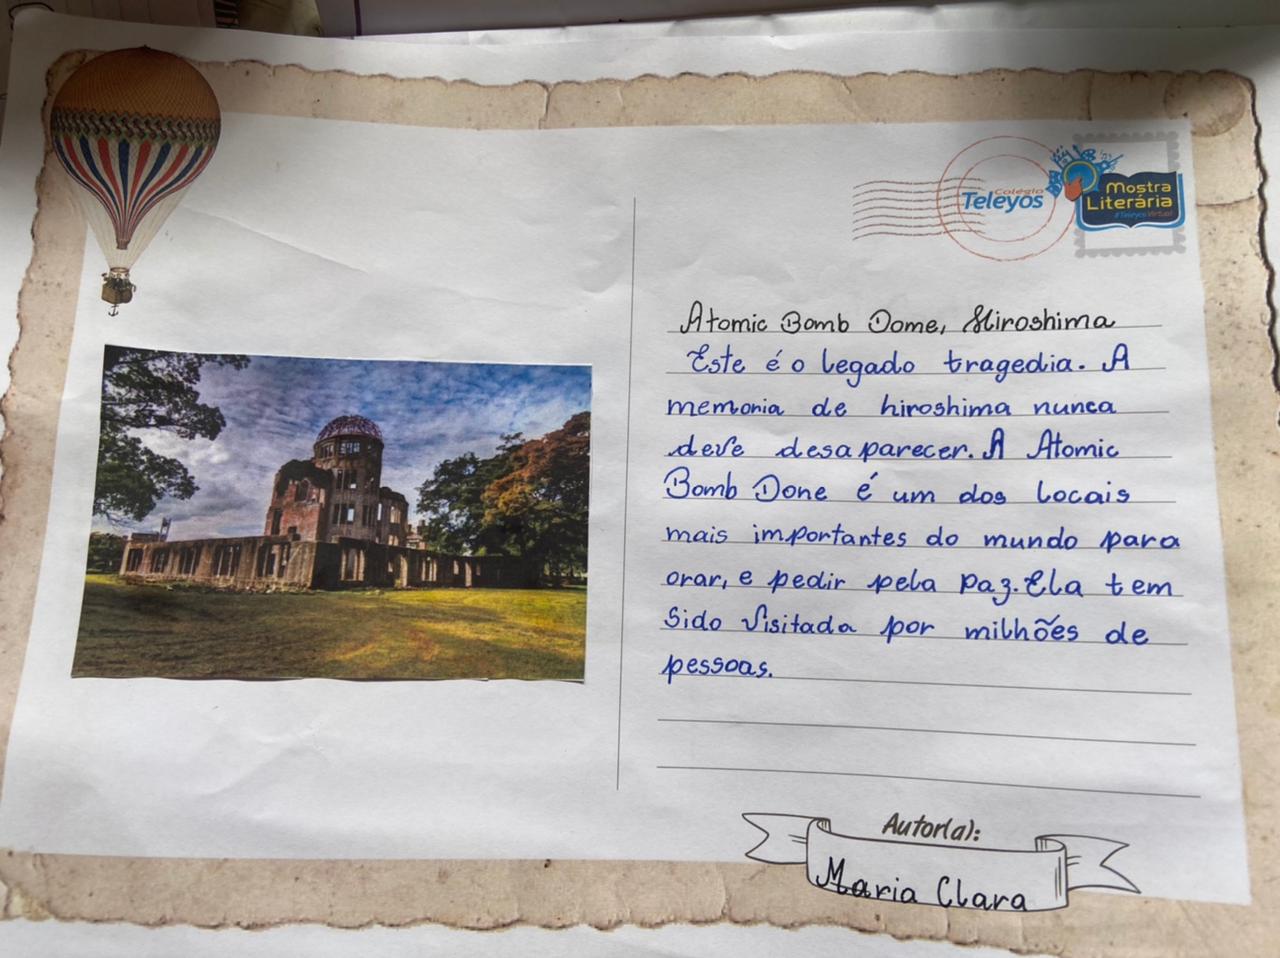 Colégio
Teleyos
Mostra
Literária
#TeleyosVirtual
Atomic Bomb Dome, Hiroshima
Este é o legado tragedia. A
memoria de hiroshima nunca
deve desaparecer. A Atomic
Bomb Done é um dos locais
mais importantes do mundo para
orar, e pedir pela paz. Ela tem
sido visitada por milhões de
pessoas.
Autor(a):
Maria Clara